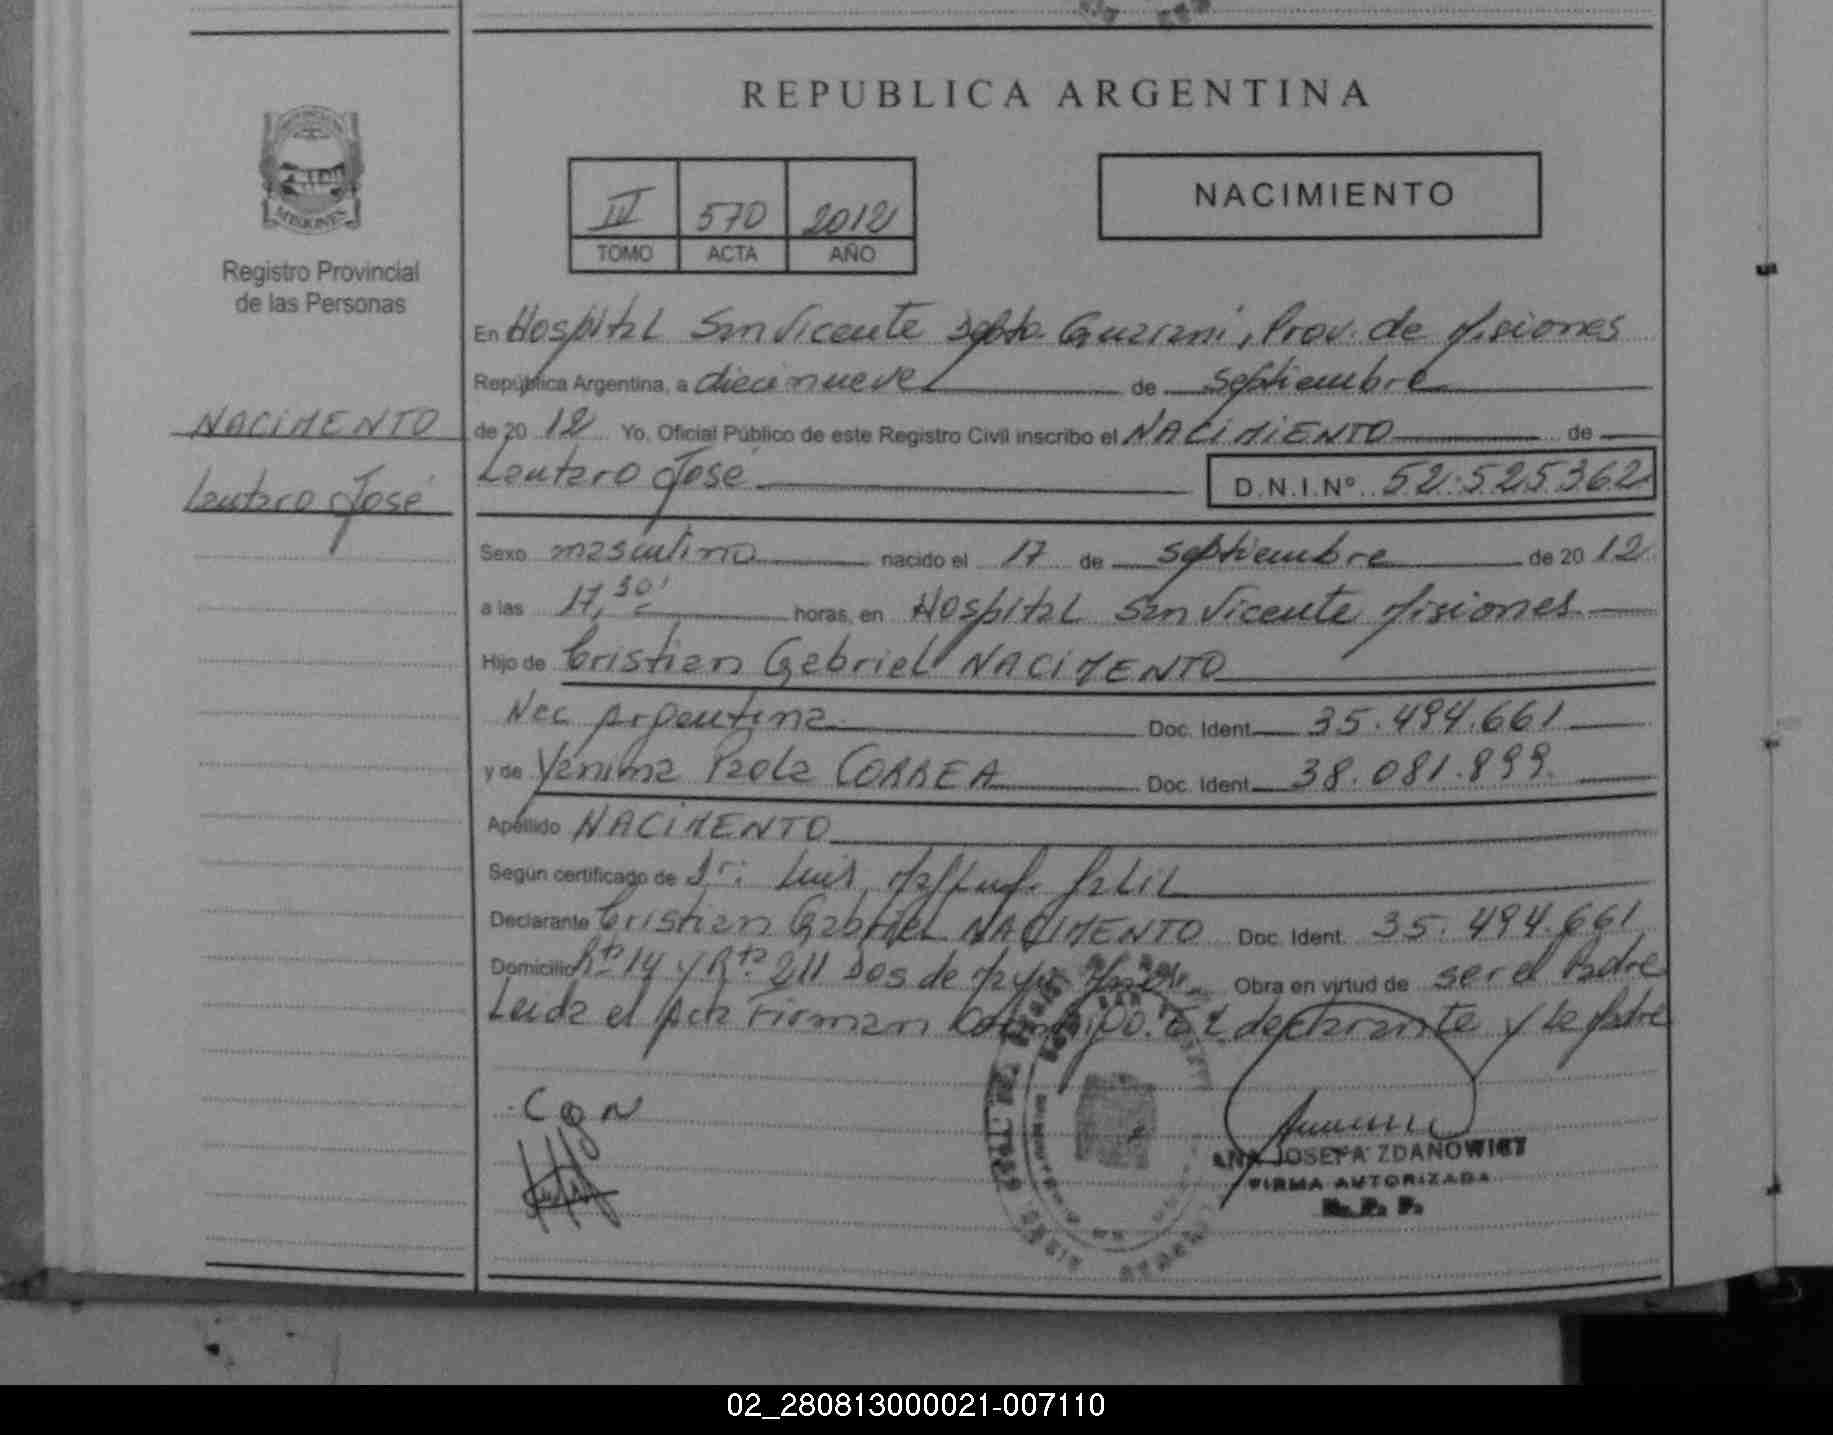 REPUBLICA ARGENTINA
MISIONES
Registro Provincial
de las Personas
III 570 2012
TOMO ACTA AÑO
NACIMIENTO
En Hospital San Vicente Depto. Guarani, Prov. de Misiones
República Argentina, a diecinueve de septiembre
de 20 12 Yo, Oficial Público de este Registro Civil inscribo el NACIMIENTO de
NACIMENTO
Lautaro José
Lautaro José D.N.I.Nº 52.525.362
Sexo masculino nacido el 17 de septiembre de 20 12
a las 17,30' horas, en Hospital San Vicente Misiones
Hijo de Cristian Gabriel NACIMENTO
Nac Argentina Doc. Ident. 35.494.661
y de Yanina Paola CORREA Doc. Ident. 38.081.899
Apellido NACIMENTO
Según certificado de Dr: Luis
Declarante Cristian Gabriel NACIMENTO Doc. Ident. 35.494.661
Domicilio Rta 14 y Rta 211 Dos de Mayo Obra en virtud de ser el Padre
Leida el Acta Firman Conmigo. El declarante y la Madre
C G N
ANA JOSEFA ZDANOWICZ
FIRMA AUTORIZADA
R. P. P.
02_280813000021-007110